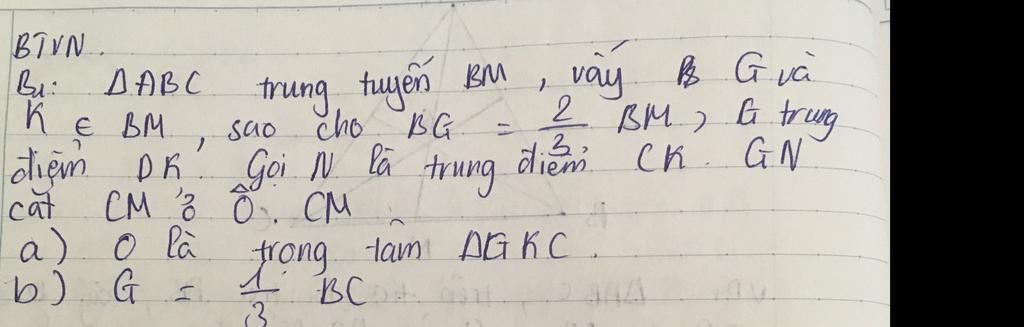 BTVN.
B1: ΔABC trung tuyến BM, vấy G và
K ∈ BM, sao cho BG = 2/3 BM, G trung
điểm DK. Gọi N là trung điểm CK. GN
cắt CM ở Ô. CM
a) O là trọng tâm ΔGKC.
b) G = 1/3 BC